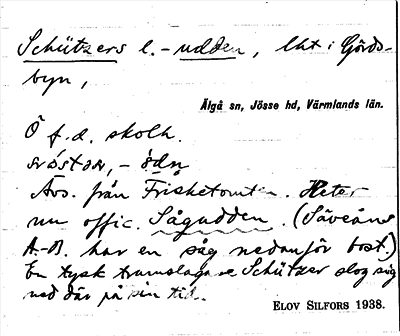 Schützers l. -udden, lht i Gårds-
byn,
Älgå sn, Jösse hd, Värmlands län.
Ö f.d. skolh.
Avs. från Frisketomten. Heter
nu offic. Sågudden. (Säveåns
A.-B. har en såg nedanför bost.)
En tysk trumslagare Schützer slog sig
ned där på sin tid.
ELOV SILFORS 1938.